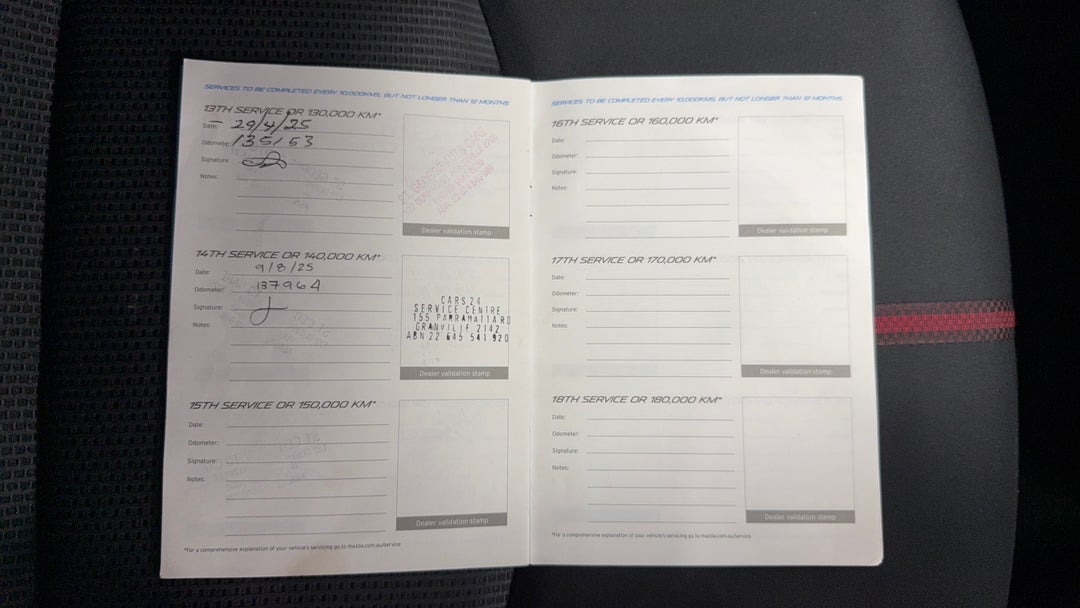 SERVICES TO BE COMPLETED EVERY 10,000KMS, BUT NOT LONGER THAN 12 MONTHS
13TH SERVICE OR 130,000 KM*
Date: 29/4/25
Odometer: 135153
Signature:
Notes:
Dealer validation stamp
14TH SERVICE OR 140,000 KM*
Date: 9/8/25
Odometer: 137964
Signature:
Notes:
CARS24
SERVICE CENTRE
155 PARRAMATTA RD
GRANVILLE 2142
ABN 22 645 541 920
Dealer validation stamp
15TH SERVICE OR 150,000 KM*
Date:
Odometer:
Signature:
Notes:
Dealer validation stamp
*For a comprehensive explanation of your vehicle's servicing go to mazda.com.au/service
SERVICES TO BE COMPLETED EVERY 10,000KMS, BUT NOT LONGER THAN 12 MONTHS
16TH SERVICE OR 160,000 KM*
Date:
Odometer:
Signature:
Notes:
Dealer validation stamp
17TH SERVICE OR 170,000 KM*
Date:
Odometer:
Signature:
Notes:
Dealer validation stamp
18TH SERVICE OR 180,000 KM*
Date:
Odometer:
Signature:
Notes:
Dealer validation stamp
*For a comprehensive explanation of your vehicle's servicing go to mazda.com.au/service